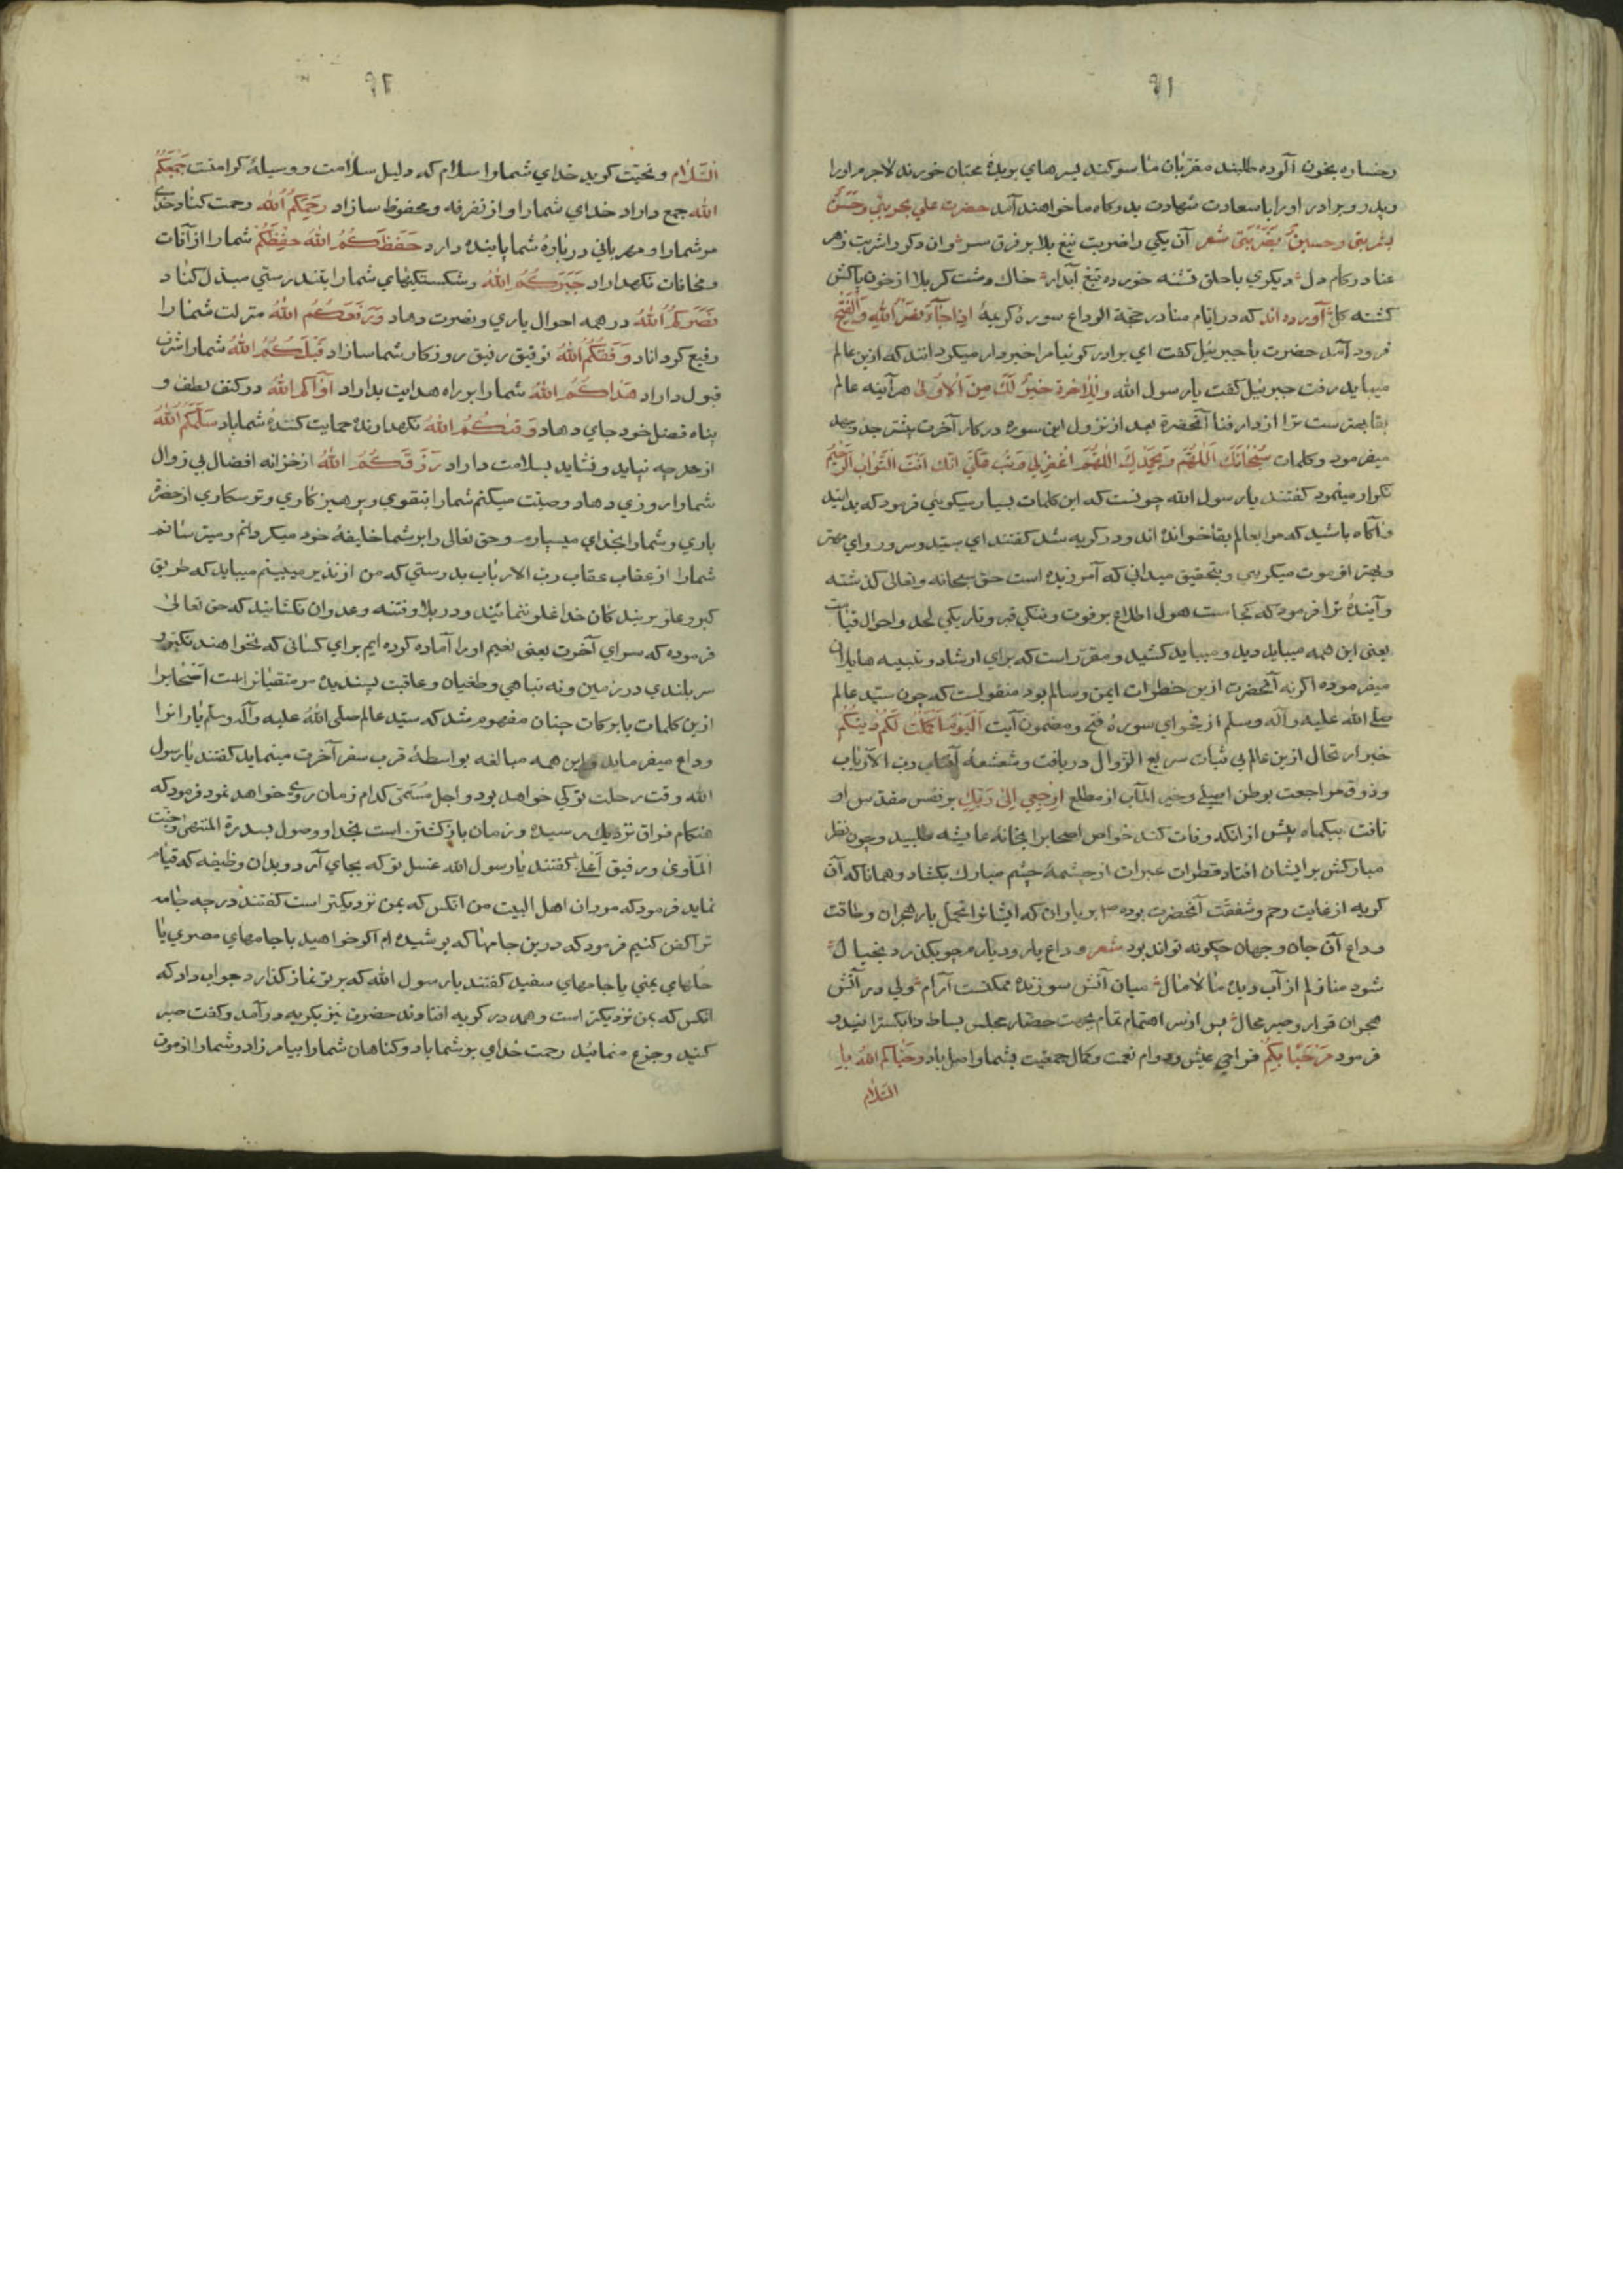 ٩١
رخساره بخون آلوده طلبند مقربان ما سوكند بسرهاي بريدهٔ محبان خورند لاجرم اورا
وپدر و برادر اورا با سعادت شهادت بدركاه ما خواهند آمد حضرت علي بحربتي وحسن
بشربتي و حسين بضربتي شعر آن يكي را ضربت تيغ بلا بر فرق سر وان دكر را شربت زهر
عنا در كام دل ديكري با حلق تشنه خورده تيغ آبدار خاك دشت كربلا از خون پاكش
كشته كل آورده اند كه در ايام منا در حجة الوداع سورهٔ كريمهٔ اذا جاء نصر الله والفتح
فرود آمد حضرت با جبرئيل كفت اي برادر كوئيا مرا خبردار ميكردانند كه ازين عالم
ميبايد رفت جبرئيل كفت يا رسول الله وللآخرة خير لك من الاولى هرآينه عالم
بقا بهترست ترا از دار فنا آنحضرة بعد از نزول اين سوره در كار آخرت بيشتر جد و جهد
ميفرمود و كلمات سبحانك اللهم وبحمدك اللهم اغفر لي وتب علي انك انت التواب الرحيم
تكرار مينمود كفتند يا رسول الله چونست كه اين كلمات بسيار ميكوئي فرمود كه بدانيد
و آكاه باشيد كه مرا بعالم بقا خوانده اند و در كريه شد كفتند اي سيد و سرور و اي مهتر
و بهتر از موت ميكريي و بتحقيق ميداني كه آمرزيده است حق سبحانه وتعالى كذشته
و آيندهٔ ترا فرمود كه كجاست هول اطلاع بر فوت و تنكي قبر و تاريكي لحد و احوال قيامت
يعني اين همه ميبايد ديد و ميبايد كشيد و مقرر است كه براي ارشاد و تنبيه ما بدان
ميفرموده اكر نه آنحضرت ازين خطرات ايمن و سالم بود منقولست كه چون سيد عالم
صلى الله عليه و آله و سلم از فحواي سورهٔ فتح و مضمون آيت اليوم اكملت لكم دينكم
خبر ارتحال ازين عالم بي ثبات سريع الزوال دريافت و شعشعهٔ آفتاب رب الارباب
و ذوق مراجعت بوطن اصلي و خير المآب از مطلع ارجعي الى ربك بر نفس مقدس او
تافت بيكماه پيش از انكه وفات كند خواص اصحابرا بخانهٔ عايشه طلبيد و چون نظر
مباركش بر ايشان افتاد قطرات عبرات از چشمهٔ چشم مبارك بكشاد و همانا كه آن
كريه از غايت رحم و شفقت آنحضرت بوده بر ياران كه ايشانرا تحمل بار هجران و طاقت
وداع آن جان و جهان چكونه تواند بود شعر وداع يار و ديار چو بكذرد بخيال
شود منازلم از آب ديده مالامال ميان آتش سوزنده ممكنست آرام ولي در آتش
هجران قرار و صبر محال پس از سر اهتمام تمام بجهت حضار مجلس بساط دعا بكسترانيد و
فرمود مرحبا بكم فراخي عيش و دوام نعمت و كمال جمعيت بشما واصل باد و حياكم الله با
السلام
٩٢
السلام و تحيت كويد خداي شمارا سلام كه دليل سلامت و وسيلهٔ كرامتست جمعكم
الله جمع داراد خداي شمارا و از تفرقه محفوظ سازاد رحمكم الله رحمت كناد خداي
مر شمارا و مهرباني دربارهٔ شما پاينده دارد حفظكم الله حفظكم شمارا از آفات
و مخافات نكهداراد جبركم الله و شكستكيهاي شمارا بتندرستي مبدل كناد
نصركم الله در همه احوال ياري و نصرت دهاد و رفعكم الله منزلت شمارا
رفيع كرداناد وفقكم الله توفيق رفيق روزكار شما سازاد قبلكم الله شمارا شرف
قبول داراد هداكم الله شمارا براه هدايت بداراد آواكم الله در كنف لطف و
پناه فضل خود جاي دهاد وقاكم الله نكهدارنده حمايت كنندهٔ شما باد سلمكم الله
از هرچه نبايد و نشايد بسلامت داراد رزقكم الله از خزانه افضال بي زوال
شمارا روزي دهاد وصيت ميكنم شمارا بتقوي و پرهيزكاري و ترسكاري از حضرة
باري و شمارا بخداي ميسپارم و حق تعالى را بر شما خليفهٔ خود ميكردانم و ميترسانم
شمارا از عقاب عقاب رب الارباب بدرستي كه من از نذير مبينم ميبايد كه طريق
كبر و علو بر بندكان خدا غلو ننمائيد و در بلاد فتنه و عدوان نكشائيد كه حق تعالى
فرموده كه سراي آخرت يعني نعيم اورا آماده كرده ايم براي كساني كه نخواهند تكبر و
سربلندي در زمين و نه تباهي و طغيان و عاقبت پسنديده مر متقيانرا است اصحابرا
ازين كلمات با بركات چنان مفهوم شد كه سيد عالم صلى الله عليه و آله و سلم يارانرا
وداع ميفرمايد و اين همه مبالغه بواسطهٔ قرب سفر آخرت مينمايد كفتند يا رسول
الله وقت رحلت تو كي خواهد بود و اجل مسمى كدام زمان روي خواهد نمود فرمود كه
هنكام فراق نزديك رسيده و زمان بازكشتن است بخدا و وصول بسدرة المنتهى و جنت
المأوى و رفيق اعلى كفتند يا رسول الله غسل تو كه بجاي آرد و بدان وظيفه كه قيام
نمايد فرمود كه مردان اهل البيت من انكس كه بمن نزديكتر است كفتند در چه جامه
ترا كفن كنيم فرمود كه درين جامها كه پوشيده ام اكر خواهيد يا جامهاي مصري يا
حلهاي يمني يا جامهاي سفيد كفتند يا رسول الله كه بر تو نماز كذارد جواب داد كه
انكس كه بمن نزديكتر است و همه در كريه افتادند حضرت نيز بكريه درآمد و كفت صبر
كنيد و جزع منمائيد رحمت خداي بر شما باد و كناهان شمارا بيامرزاد و شمارا از موت